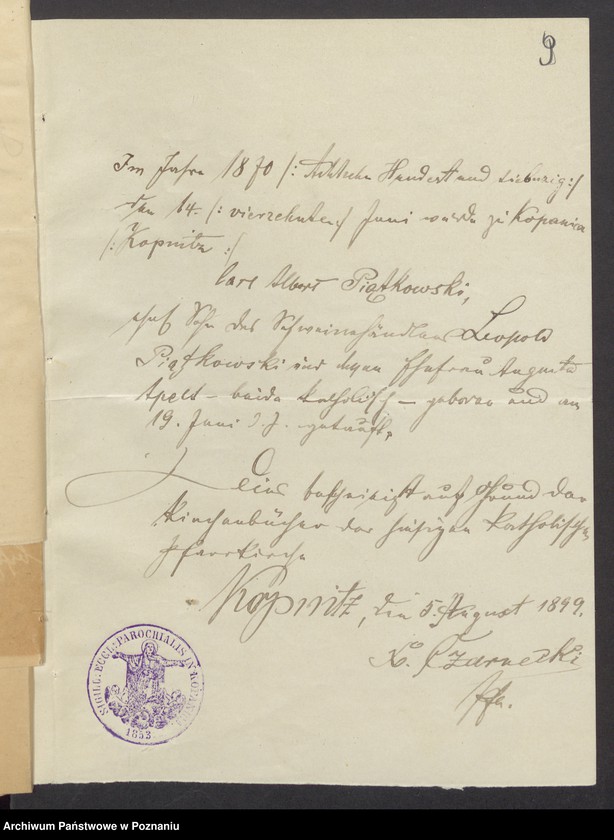 9
Im Jahre 1870 /: Achtzehn Hundert und siebenzig :/
den 14. /: vierzehnten :/ Juni wurde zu Kopanica
/: Kopnitz :/
Carl Albert Piątkowski,
ehel. Sohn des Schweinehändlers Leopold
Piątkowski und dessen Ehefrau Augusta
Apelt - beide katholisch - geboren und am
19. Juni d. J. getauft.
Dies bescheinigt auf Grund der
Kirchenbücher der hiesigen katholischen
Pfarrkirche
Kopnitz, den 5. August 1899.
X. Czarnecki
Pfr.
SIGILL. ECCL. PAROCHIALIS IN KOPANICA
1853
Archiwum Państwowe w Poznaniu